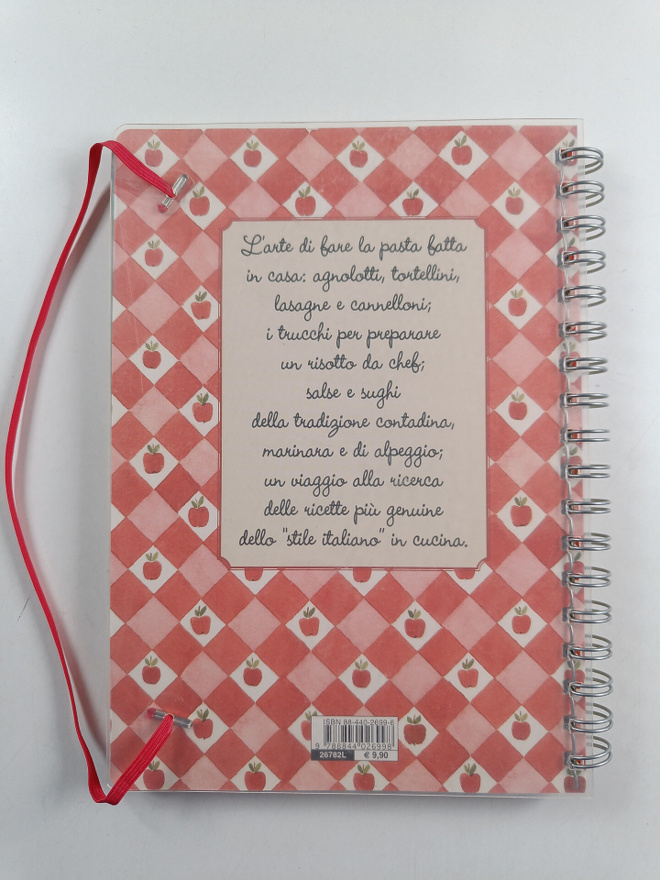 L'arte di fare la pasta fatta
in casa: agnolotti, tortellini,
lasagne e cannelloni;
i trucchi per preparare
un risotto da chef;
salse e sughi
della tradizione contadina,
marinara e di alpeggio;
un viaggio alla ricerca
delle ricette più genuine
dello "stile italiano" in cucina.
ISBN 88-440-2699-6
9 788844 026998
26782L € 9,90